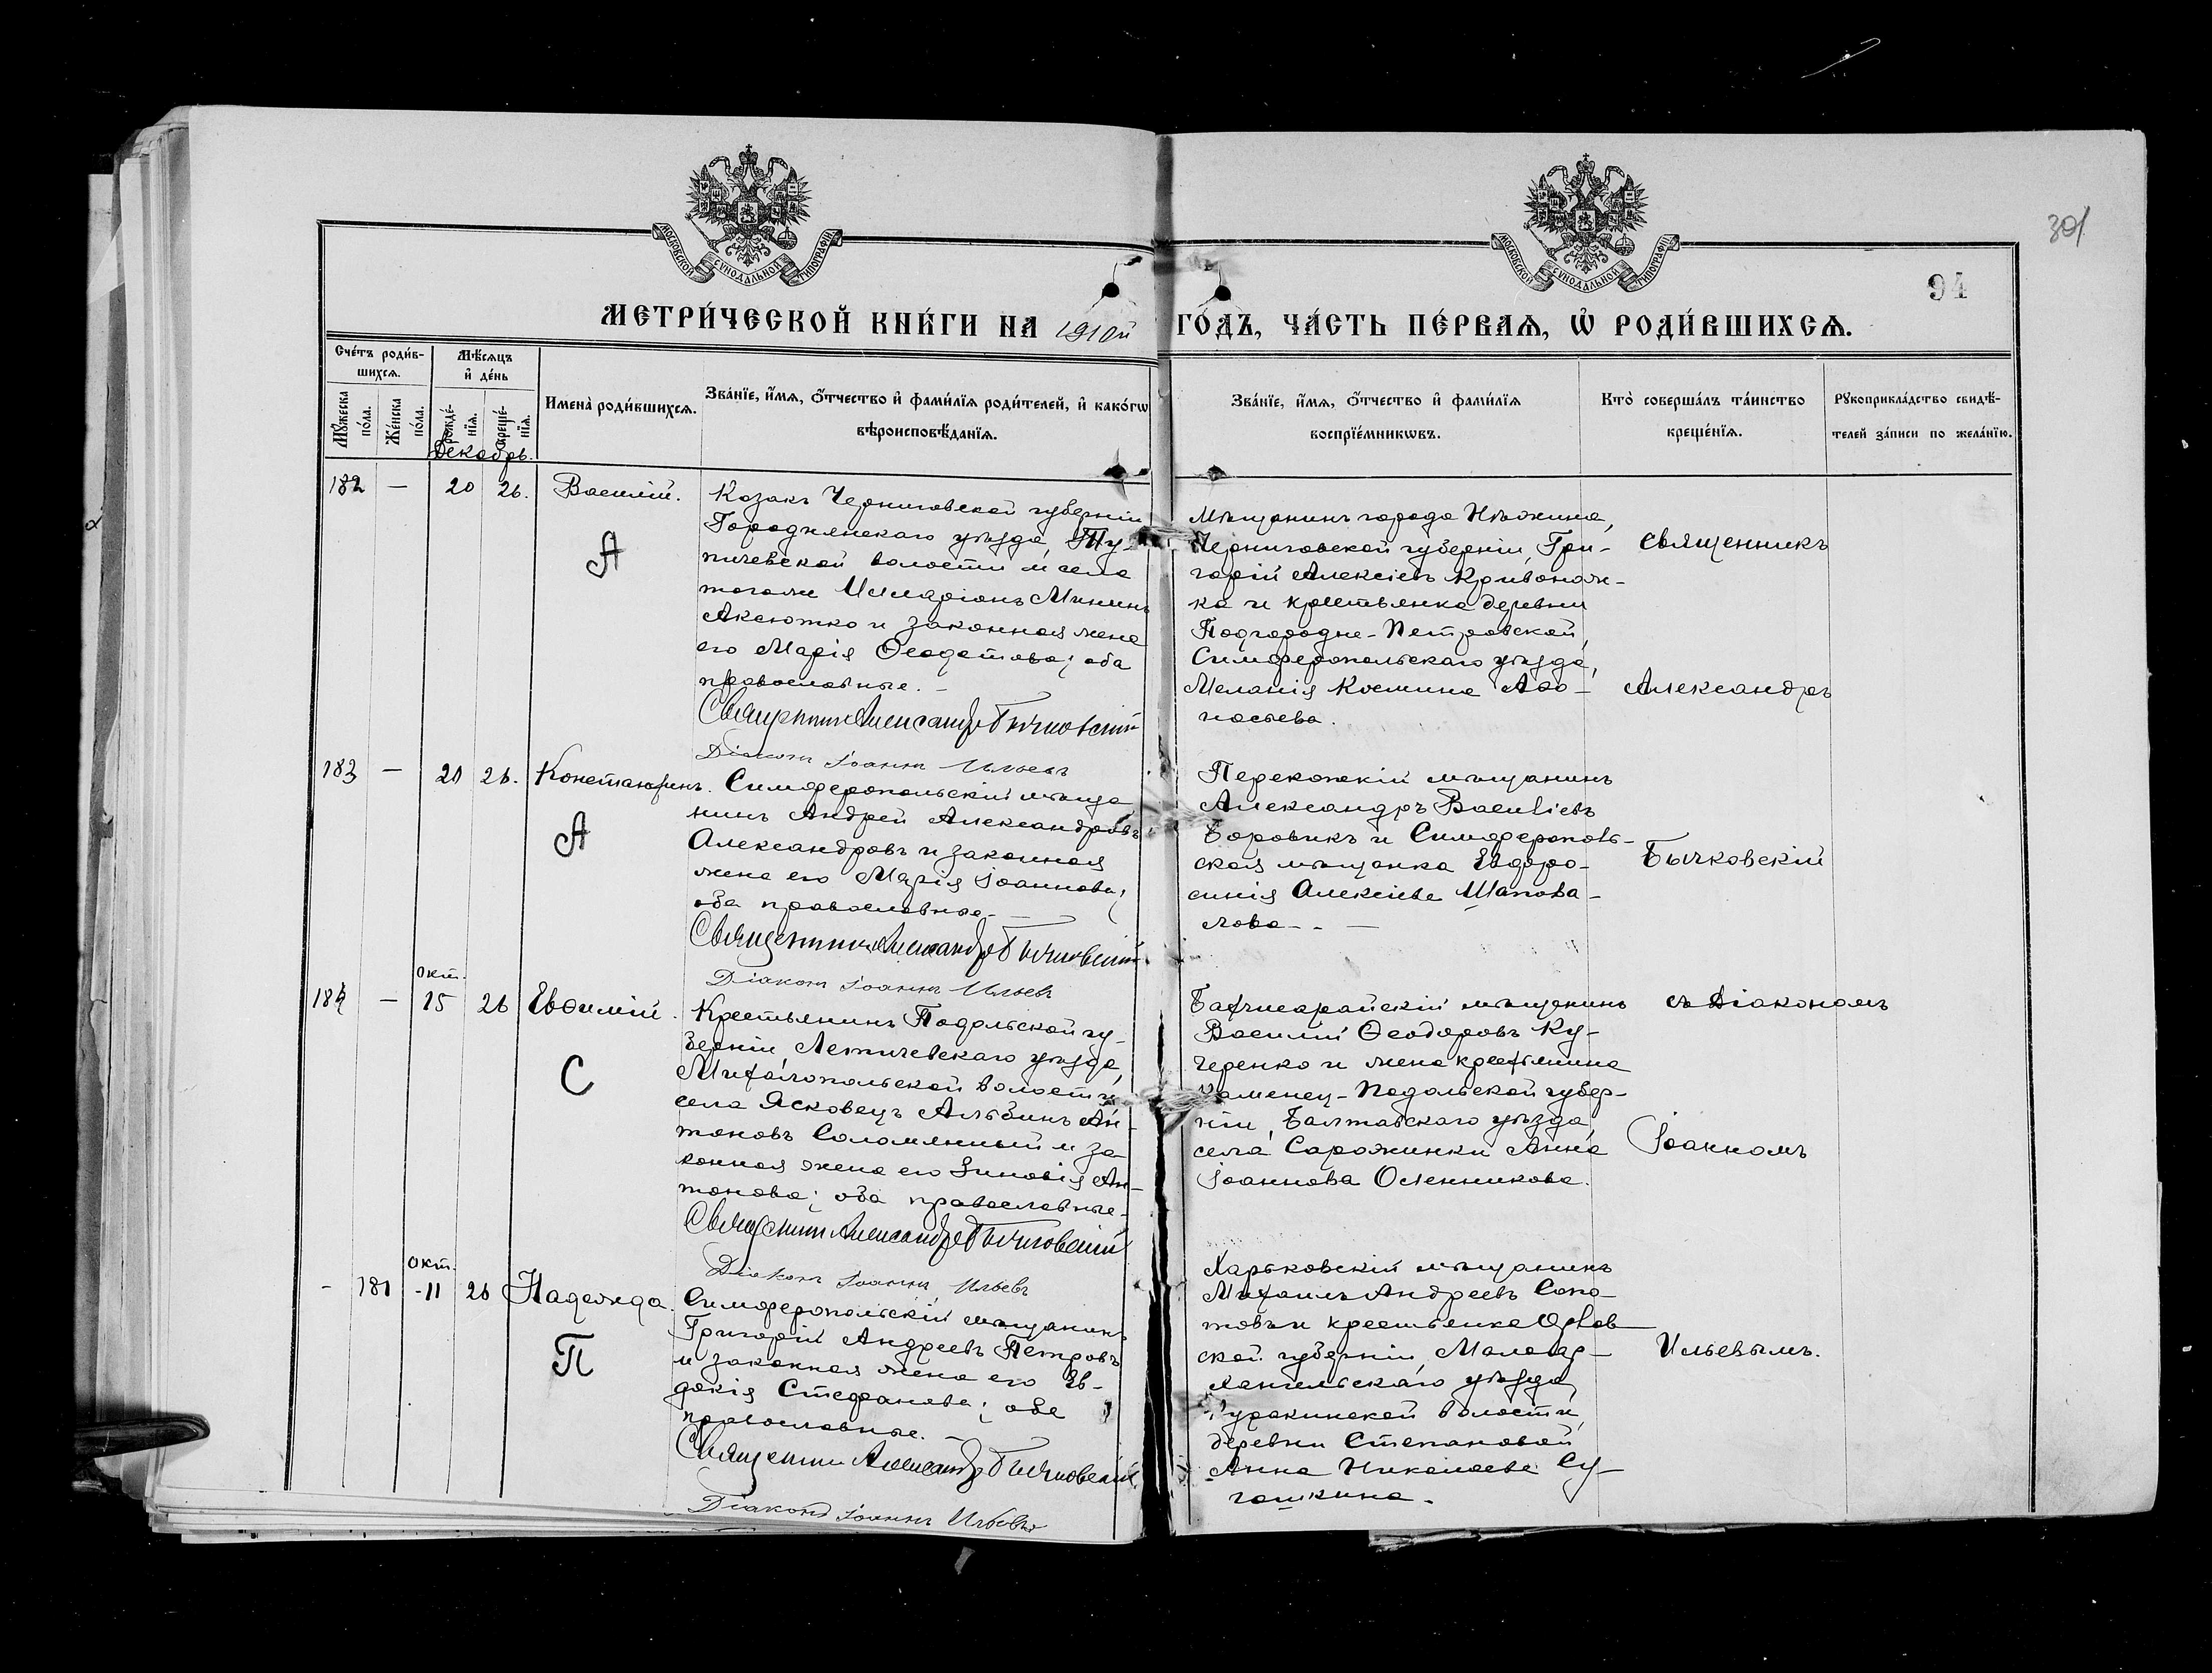 301
94
МОСКОВСКОЙ СѴНОДАЛЬНОЙ ТИПОГРАФІИ
МОСКОВСКОЙ СѴНОДАЛЬНОЙ ТИПОГРАФІИ
МЕТРИ́ЧЕСКОЙ КНИ́ГИ НА 1910й ГО́ДЪ, ЧА́СТЬ ПЕ́РВАѦ, Ѡ҆ РОДИ́ВШИХСѦ.
Счетъ роди́в-
шихсѧ.
Мѣ́сѧцъ
и҆ де́нь
Мꙋжеска
по́ла.
Же́нска
по́ла.
рожде́-
нїѧ.
креще́-
нїѧ.
Имена̀ роди́вшихсѧ.
Зва́нїе, и҆́мѧ, ѻ҆́тчество и҆ фами́лїѧ роди́телей, и҆ како́гѡ
вѣроисповѣ́данїѧ.
Зва́нїе, и҆́мѧ, ѻ҆́тчество и҆ фами́лїѧ
воспрїе́мникѡвъ.
Кто̀ соверша́лъ та́инство
креще́нїѧ.
Рꙋкоприкла́дство свидѣ́-
телей за́писи по жела́нїю.
Декабрь.
182 — 20 26. Василій.
А
Козакъ Черниговской губерніи
Городнянскаго уѣзда, Ту-
пичевской волости и села
того же Илларіонъ Мининъ
Аксютко и законная жена
его Марія Ѳеодотова; оба
православные. —
Священникъ Александръ Бычковскій
Діаконъ Іоаннъ Ильевъ
Мѣщанинъ города Нѣжина,
Черниговской губерніи, Гри-
горій Алексіевъ Кривонож-
ка и крестьянка деревни
Подгородне-Петровской,
Симферопольскаго уѣзда,
Меланія Космина Аѳо-
насьева.
Священникъ
Александръ
183 — 20 26. Константинъ.
А
Симферопольскій мѣща
нинъ Андрей Александровъ
Александровъ и законная
жена его Марія Іоаннова;
оба православные. —
Священникъ Александръ Бычковскій
Діаконъ Іоаннъ Ильевъ
Перекопскій мѣщанинъ
Александръ Василіевъ
Боровикъ и Симферополь-
ская мѣщанка Евфро-
синія Алексіева Шапова-
лова - - —
Бычковскій
окт.
184 — 15 26 Евѳимій.
С
Крестьянинъ Подольской гу-
берніи, Летичевскаго уѣзда,
Михалопольской волости,
села Ясковецъ Альбинъ Ан-
тоновъ Соломянный и за
конная жена его Зиновія Ан-
тонова; оба православные-
Священникъ Александръ Бычковскій
Діаконъ Іоаннъ Ильевъ
Бахчисарайскій мѣщанинъ
Василій Ѳеодоровъ Ку-
черенко и жена крестьянина
Каменец-Подольской губер-
ніи, Балтавскаго уѣзда,
села Сарожинки Анна
Іоаннова Олейникова.
съ Діакономъ
Іоанномъ
окт.
- 181 -11 26 Надежда.
П
Симферопольскій мѣщанинъ
Григорій Андреевъ Петровъ
и законная жена его Ев-
докія Стефанова; оба
православные. —
Священникъ Александръ Бычковскій
Діаконъ Іоаннъ Ильевъ
Харьковскій мѣщанинъ
Михаилъ Андреевъ Сопо-
товъ и крестьянка Орлов-
ской губерніи, Малоар-
хангельскаго уѣзда,
Куракинской волости,
деревни Степановой
Анна Николаева Су-
гошкина.
Ильевымъ.